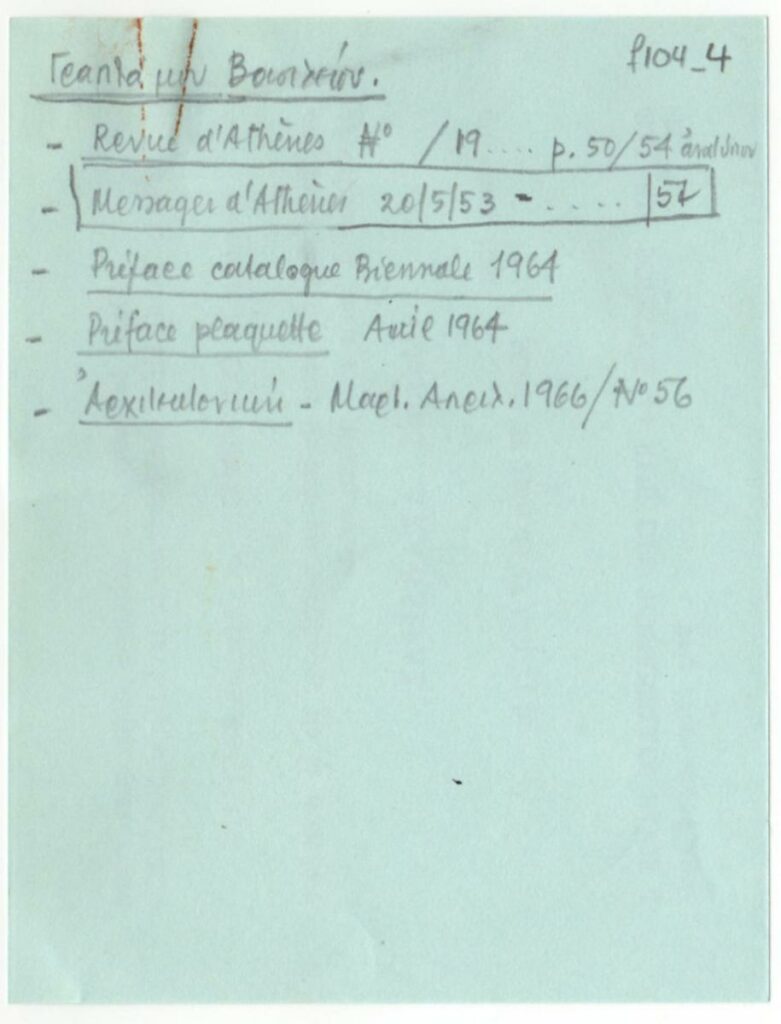 f104_4
Γραπτά μην Βασιλείου.
- Revue d'Athènes N° /19.... p. 50/54
- Messager d'Athènes 20/5/53 - ..... |57
- Préface catalogue Biennale 1964
- Préface plaquette Avril 1964
- Ἀρχιτεκτονική - Μαρτ. Απριλ. 1966/No 56